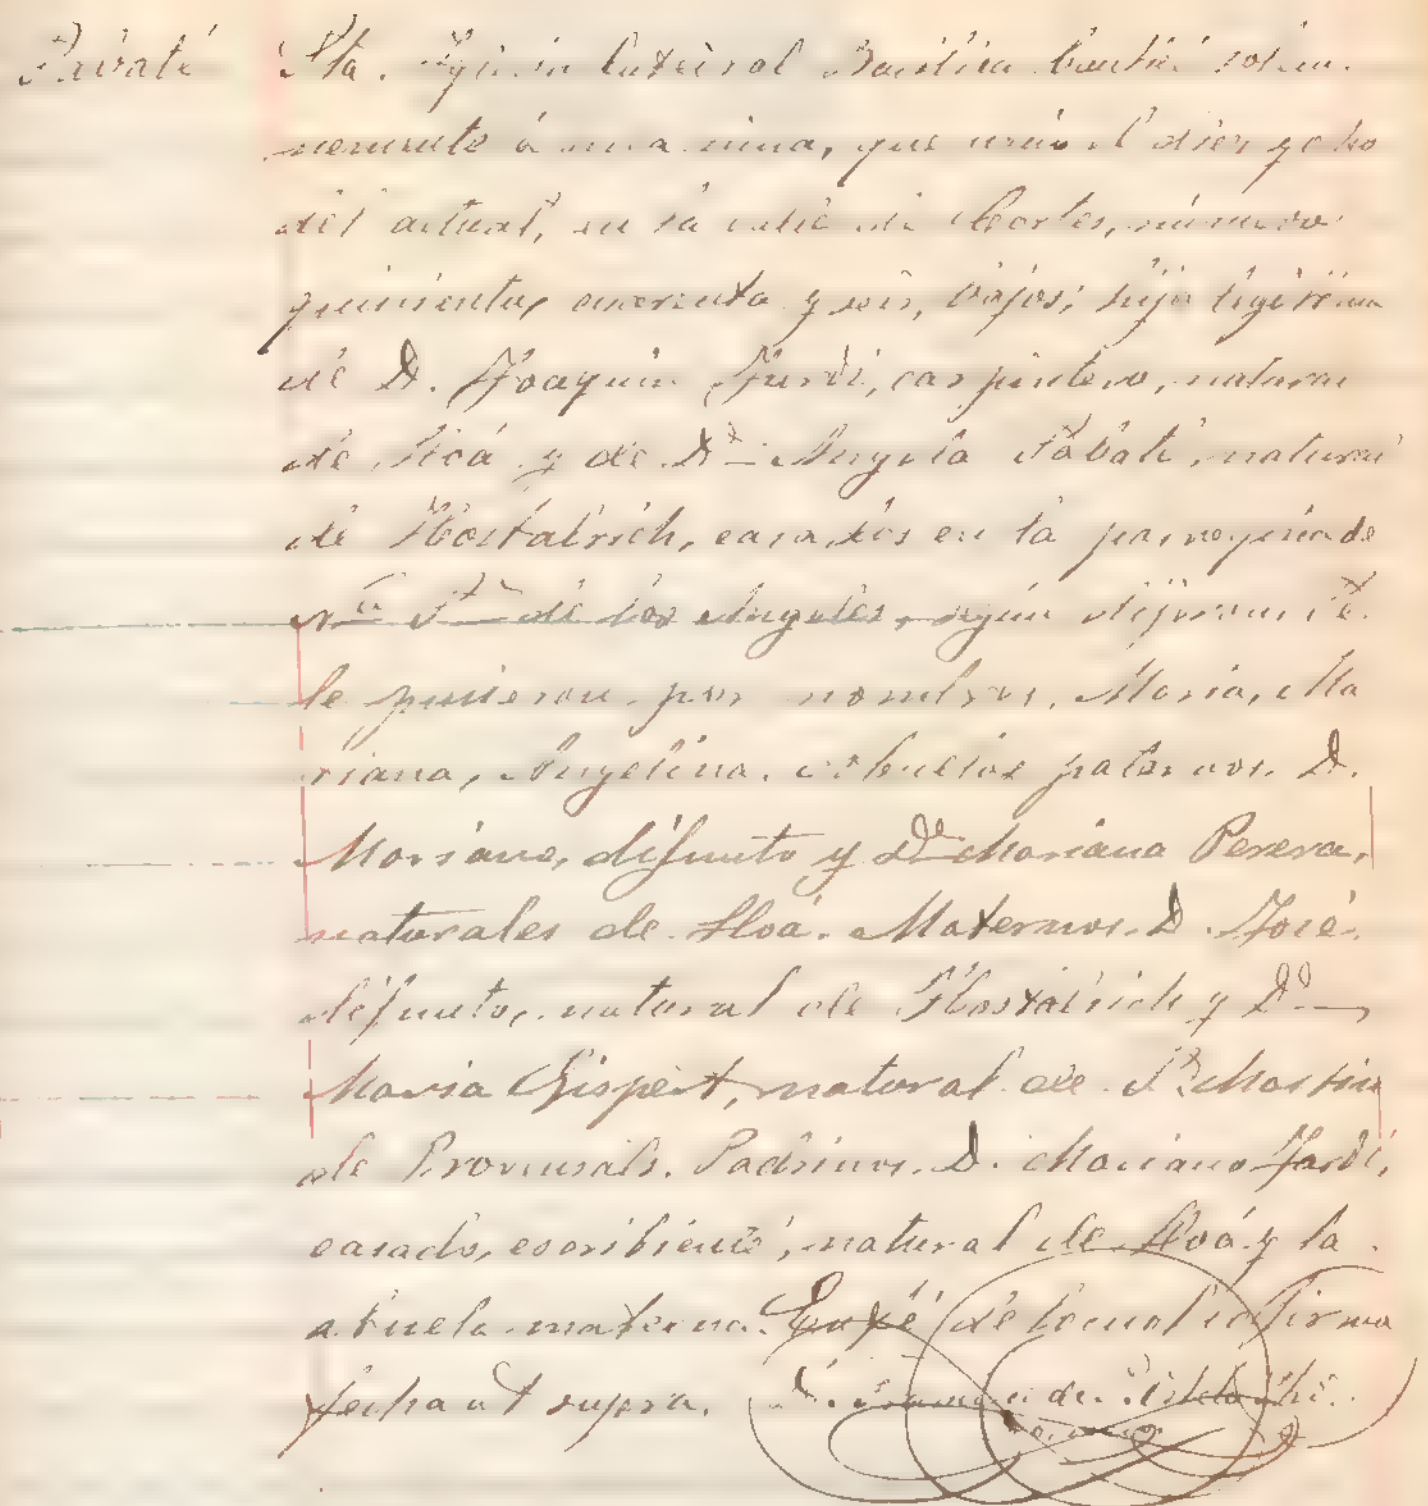 Sabaté Sta. Iglesia Catedral Basílica bauticé solem-
nemente á una niña, que nació el diez y ocho
del actual, en la calle de Cortes, número
quinientos cuarenta y seis, bajos; hija legítima
de D. Joaquin Jardí, carpintero, natural
de Ascó y de Dª Angela Sabaté, natural
de Hostalrich, casados en la parroquia de
Nª Sª de los Angeles, según dijeron, se
le pusieron por nombres, Maria, Ma
riana, Angelina. Abuelos paternos. D.
Mariano, difunto y Dª Mariana Perera,
naturales de Maternos. D. José
difunto, natural de Hostalrich y Dª
Maria Gispert, natural de Sn Martin
de Provensals. Padrinos. D. Mariano Jardí,
casado, escribiente, natural de y la
abuela materna. de lo cual lo firmo
fecha ut supra.